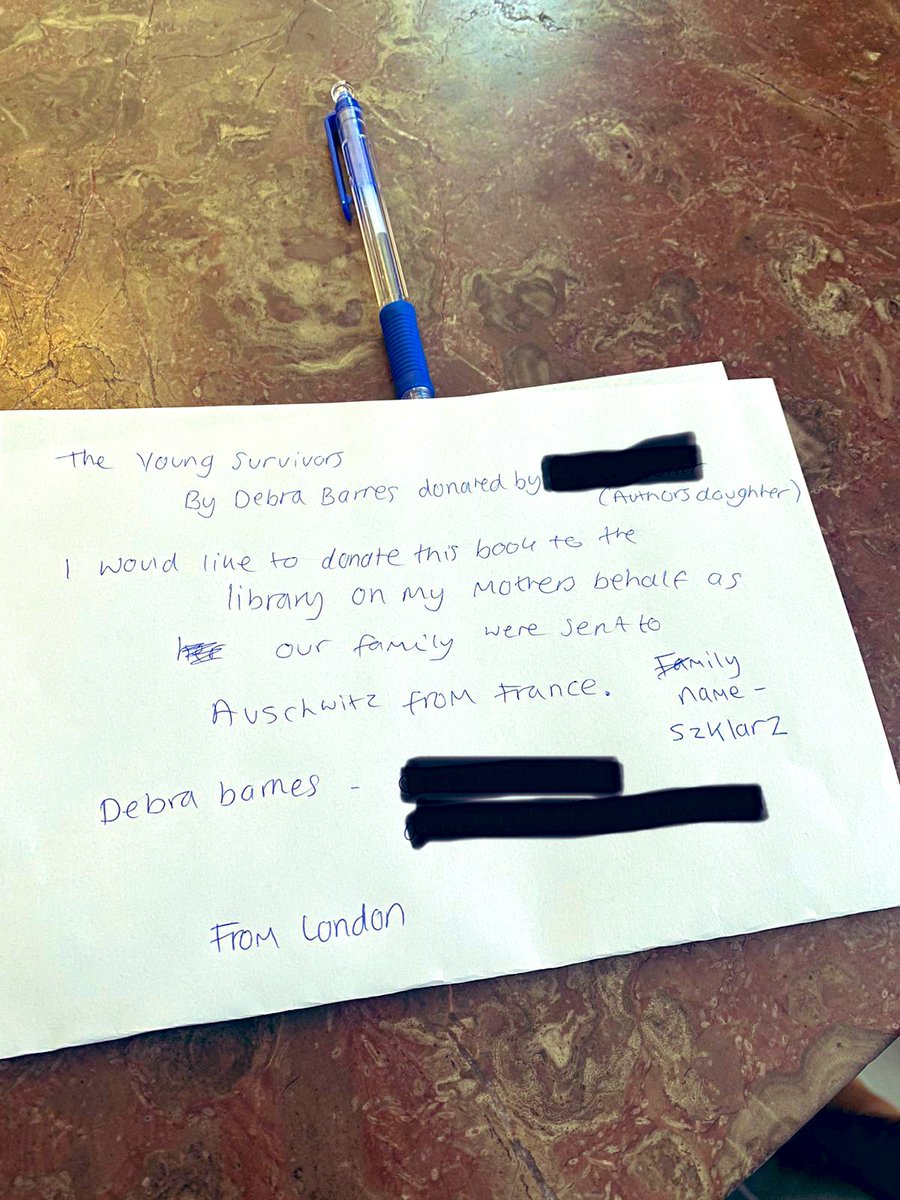 The Young Survivors
By Debra Barnes donated by
(Authors daughter)
I would like to donate this book to the
library on my Mothers behalf as
our family were sent to
Auschwitz from France.
Family
name -
Szklarz
Debra barnes -
From London